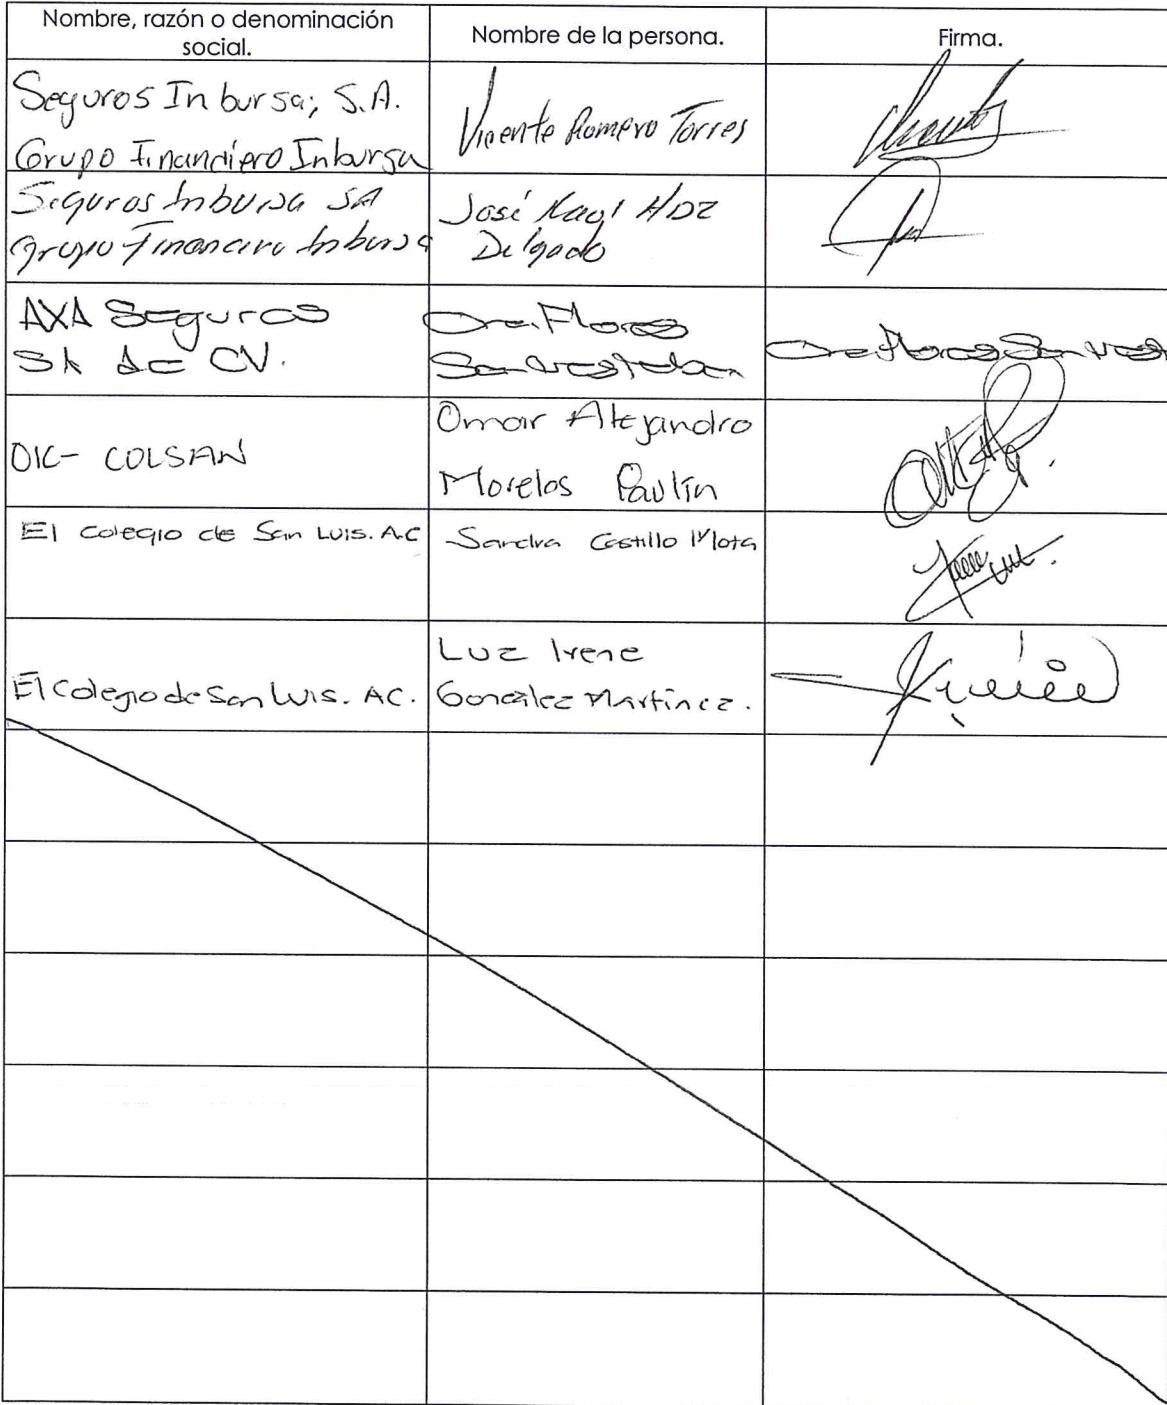 Nombre, razón o denominación
social.
Nombre de la persona.
Firma.
Seguros Inbursa, S.A.
Grupo Financiero Inbursa
Vicente Romero Torres
Seguros Inbursa SA
Grupo Financiero Inbursa
José Raúl HDZ
Delgado
AXA Seguros
SA de CV.
Flores
OIC- COLSAN
Omar Alejandro
Morelos Paulín
El Colegio de San Luis. A.C
Sandra Castillo Mota
El Colegio de San Luis. AC.
Luz Irene
González Martínez.